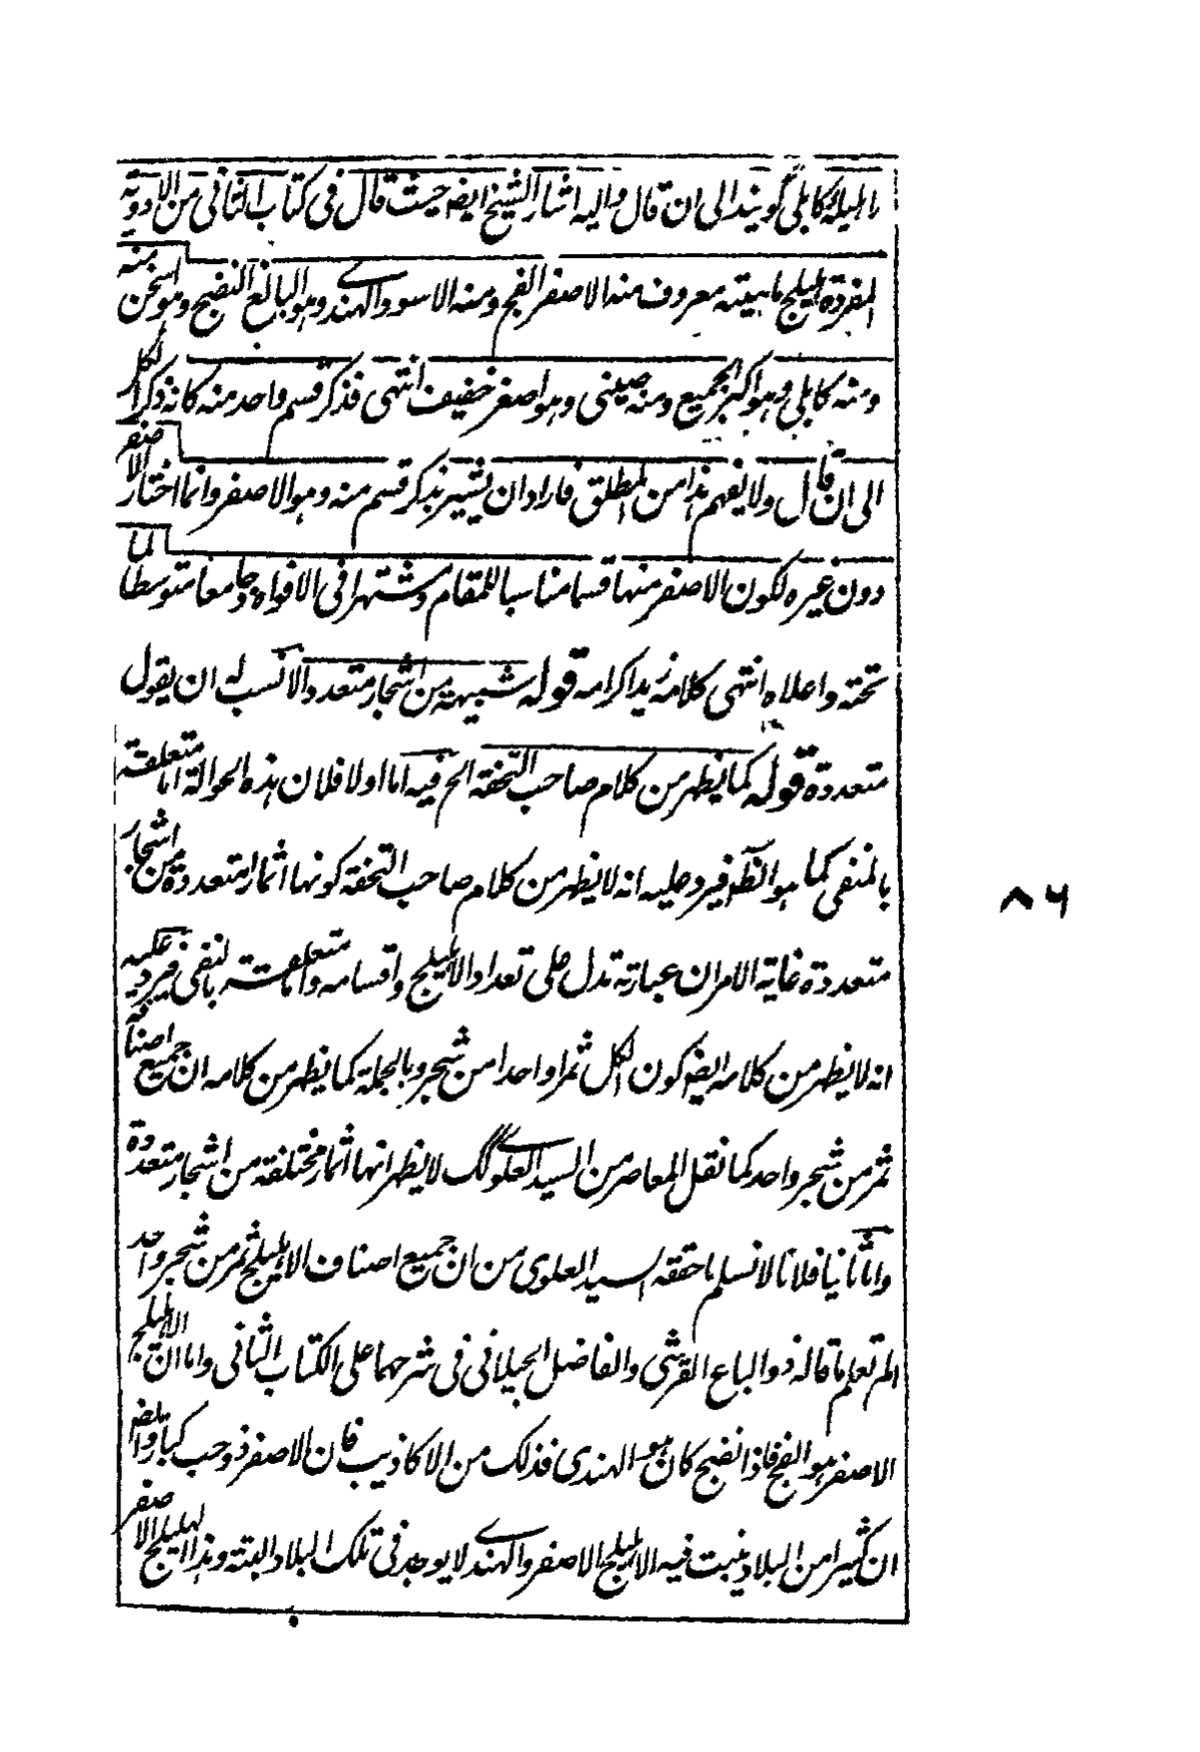 را هلیله کابلی گویند الی ان قال والیه اشار الشیخ ایضا حیث قال فی کتاب الثانی من الادویة
المفردة اهلیلج ماهیته معروف منه الاصفر الفج ومنه الاسود الهندے وهو البالغ النضیج وهو اسخن منه
ومنه کابلی وهو اکبر الجمیع ومنه صینی وهو اصغر خفیف انتهی فذکر قسم واحد منه کانه ذکر الکل
الی ان قال ولا یفهم هذا من المطلق فاراد ان یشیر بذکر قسم منه وهو الاصفر وانما اختار الاصفر
دون غیره لکون الاصفر منها قسما مناسبا للمقام وشتهرا فی الافواه وجامعا متوسطا لما
تحته واعلاه انتهی کلامه زید اکرامه قوله شبیهة من اشجار متعدد والانسب له ان یقول
متعددة قوله کما یظهر من کلام صاحب التحفة الخ فیه اما اولا فلان هذه الحوالة اما متعلقة
بالمنفی کما هو الظ فیرد علیه انه لا یظهر من کلام صاحب التحفة کونها اثمارا متعددة من اشجار
متعددة غایة الامر ان عبارته تدل علی تعداد الاهلیلج واقسامه واما متعلقة بالنفی فیرد علیه
انه لا یظهر من کلامه ایضا کون الکل ثمرا واحدا من شجر وبالجملة کما یظهر من کلامه ان جمیع اصنافه
ثمر من شجر واحد کما نقل المعاصر من السید العلوے کک لا یظهر انها اثمار مختلفة من اشجار متعددة
واما ثانیا فلانا لا نسلم ما حققه السید العلوی من ان جمیع اصناف الاهلیلج ثمر من شجر واحد
الم تعلم ما قاله ذو الباع القرشی والفاضل الجیلانی فی شرحهما علی الکتاب الثانی واما ان الاهلیلج
الاصفر هو الفج فاذا نضج کان هو الهندی فذلک من الاکاذیب فان الاصفر ذو حب کبار وایضا
ان کثیرا من البلاد ینبت فیه الاهلیلج الاصفر والهندے لا یوجد فی تلک البلاد البتة وهذا الهلیلج الاصفر
۸۶